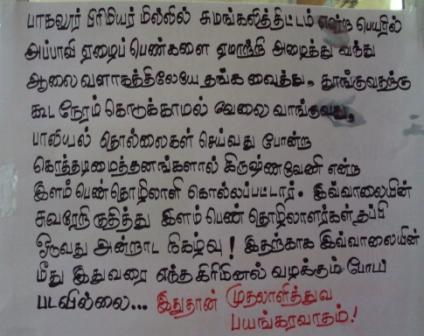 பாகலூர் பிரிமியர் மில்லில் சுமங்கலித்திட்டம் என்ற பெயரில்
அப்பாவி ஏழைப் பெண்களை ஏமாற்றி அழைத்து வந்து
ஆலை வளாகத்திலேயே தங்க வைத்து, தூங்குவதற்கு
கூட நேரம் கொடுக்காமல் வேலை வாங்குவது,
பாலியல் தொல்லைகள் செய்வது போன்ற
கொத்தடிமைத்தனங்களால் கிருஷ்ணவேணி என்ற
இளம்பெண்தொழிலாளி கொல்லப்பட்டார். இவ்வாலையின்
சுவரேறி குதித்து இளம் பெண் தொழிலாளர்கள் தப்பி
ஓடுவது அன்றாட நிகழ்வு! இதற்காக இவ்வாலையின்
மீது இதுவரை எந்த கிரிமினல் வழக்கும் போடப்
படவில்லை... இதுதான் முதலாளித்துவ
பயங்கரவாதம்!